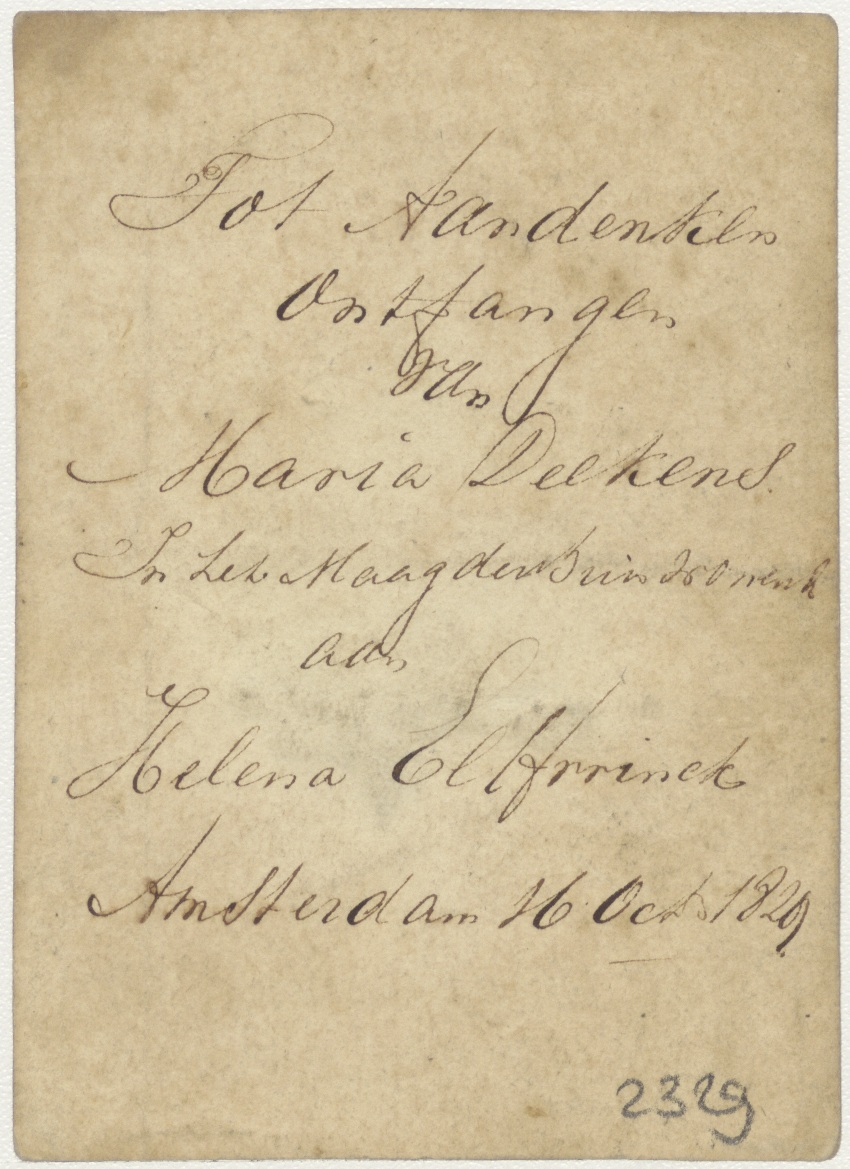 Tot Aandenken
Ontfangen
Van
Maria Deekens
In het Maagden
aan
Helena Elffrrinck
Amsterdam 16 Oct 1829
2329